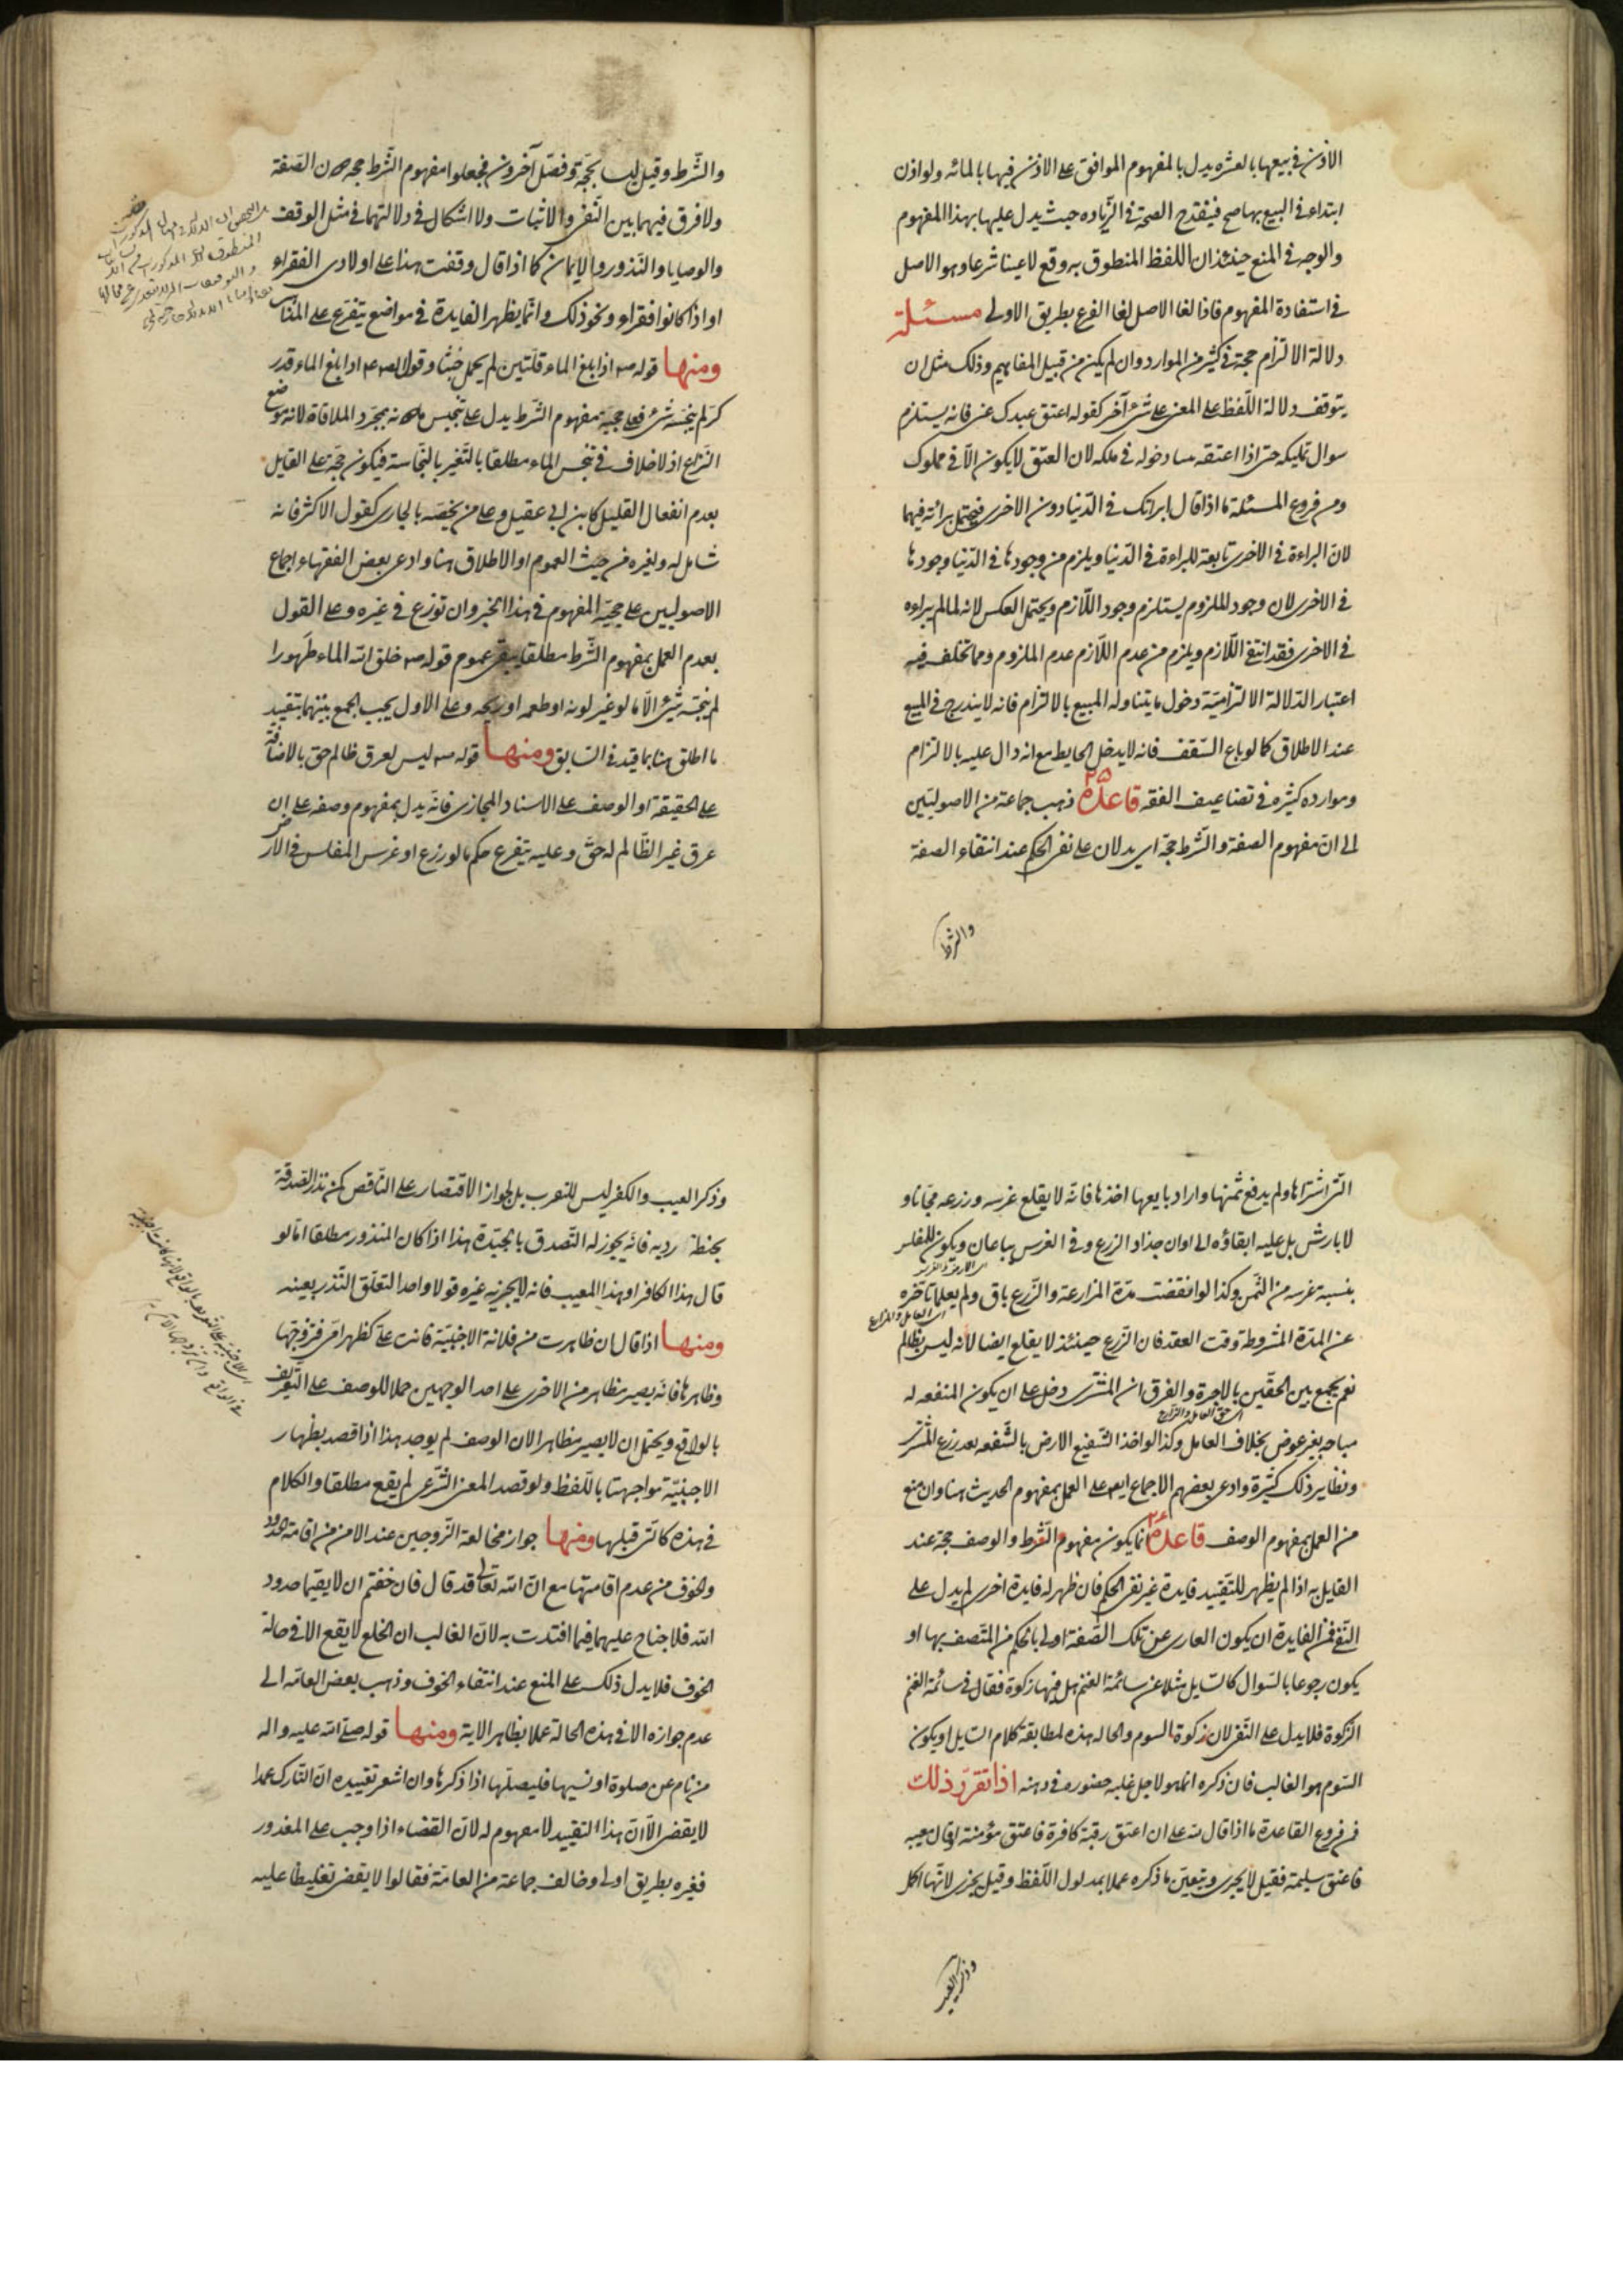 الاذن في بيعها بالعشره يدل بالمفهوم الموافق على الاذن فيها بالمائه ولو اذن
ابتداء في البيع بها صح فينقدح الصحة في الزياده حيث يدل عليها بهذا المفهوم
والوجه في المنع حينئذ ان اللفظ المنطوق به وقع لاغيا شرعا وهو الاصل
في استفادة المفهوم فاذا لغا الاصل لغا الفرع بطريق الاولى مسئلة
دلالة الالتزام حجة في كثير من الموارد وان لم يكن من قبيل المفاهيم وذلك مثل ان
يتوقف دلالة اللفظ على المعنى على شئ آخر كقوله اعتق عبدك عنى فانه يستلزم
سوال تمليكه حتى اذا اعتقه دخوله في ملكه لان العتق لا يكون الا في مملوك
ومن فروع المسئلة ما اذا قال ابراتك في الدنيا دون الاخرى فيحتمل برائته فيهما
لان البراءة في الاخرى تابعة للبراءة في الدنيا ويلزم من وجودها في الدنيا وجودها
في الاخرى لان وجود الملزوم يستلزم وجود اللازم ويحتمل العكس لانه لما لم يبراه
في الاخرى فقد انتفى اللازم ويلزم من عدم اللازم عدم الملزوم ومما تخلف فيه
اعتبار الدلالة الالتزامية دخول ما يتناوله المبيع بالالتزام فانه لا يندرج في المبيع
عند الاطلاق كما لو باع السقف فانه لا يدخل الحايط مع انه دال عليه بالالتزام
وموارده كثيره في تضاعيف الفقه قاعدة ٢٥ ذهب جماعة من الاصوليين
الى ان مفهوم الصفة والشرط حجة اى يدلان على نفى الحكم عند انتفاء الصفة
والشرط
والشرط وقيل ليسا بحجة وفصل آخرون فجعلوا مفهوم الشرط حجة دون الصفة
ولا فرق فيهما بين النفى والاثبات ولا اشكال في دلالتهما في مثل الوقف
والوصايا والنذور والايمان كما اذا قال وقفت هذا على اولادى الفقراء
او اذا كانوا فقراء ونحو ذلك وانما يظهر الفايدة في مواضع يتفرع على
ومنها قوله ص اذا بلغ الماء قلتين لم يحمل خبثا وقوله ع اذا بلغ الماء قدر
كر لم ينجسه شئ فعلى حجية مفهوم الشرط يدل على تنجيس ما دونه بمجرد الملاقاة لانه موضع
النزاع اذ لا خلاف في تنجس الماء مطلقا بالتغير بالنجاسة فيكون حجة على القايل
بعدم انفعال القليل كابن ابى عقيل وعلى من يخصه بالجارى كقول الاكثر فانه
شامل له ولغيره من حيث العموم او الاطلاق هنا وادعى بعض الفقهاء اجماع
الاصوليين على حجية المفهوم في هذا الخبر وان نوزع في غيره وعلى القول
بعدم العمل بمفهوم الشرط مطلقا يبقى عموم قوله ص خلق الله الماء طهورا
لم ينجسه شئ الا ما لو غير لونه او طعمه او ريحه وعلى الاول يجب الجمع بينهما بتقييد
ما اطلق هنا بما قيد في السابق ومنها قوله ص ليس لعرق ظالم حق بالاضافة
على الحقيقة او الوصف على الاسناد المجازى فانه يدل بمفهوم وصفه على ان
عرق غير الظالم له حق وعليه يتفرع حكم ما لو زرع او غرس المفلس في الارض
التى اشتراها ولم يدفع ثمنها واراد بايعها اخذها فانه لا يقلع غرسه وزرعه مجانا ولا
لا بارش بل عليه ابقاؤه الى اوان جذاذ الزرع وفي الغرس يباعان ويكون للمفلس
بنسبة غرسه من الثمن وكذا لو انقضت مدة المزارعة والزرع باق ولم يعلما تاخره
عن المدة المشروطة وقت العقد فان الزرع حينئذ لا يقلع ايضا لانه ليس بظالم
نعم يجمع بين الحقين بالاجرة والفرق ان المشترى دخل على ان يكون المنفعه له
مباحه بغير عوض بخلاف العامل وكذا لو اخذ الشفيع الارض بالشفعه بعد زرع المشترى
ونظاير ذلك كثيرة وادعى بعضهم الاجماع ايضا على العمل بمفهوم الحديث هنا وان منع
من العمل بمفهوم الوصف قاعدة ٢٦ انما يكون مفهوم الشرط والوصف حجة عند
القايل به اذا لم يظهر للتقييد فايدة غير نفى الحكم فان ظهر له فايدة اخرى لم يدل على
النفى فمن الفايدة ان يكون العارى عن تلك الصفة اولى بالحكم من المتصف بها او
يكون رجوعا بالسوال كالسايل مثلا عن سائمة الغنم هل فيها زكوة فقال في سائمة الغنم
الزكوة فلا يدل على النفى لان زكوة السوم والحاله هذه لمطابقة كلام السايل او يكون
السوم هو الغالب فان ذكره انما هو لاجل غلبه حضوره في ذهنه اذا تقرر ذلك
فمن فروع القاعدة ما اذا قال لله على ان اعتق رقبة كافرة فاعتق مؤمنة او قال معيبه
فاعتق سليمة فقيل لا يجزى ويتعين ما ذكره عملا بمدلول اللفظ وقيل يجزى لانها اكمل
وذكر العيب
وذكر العيب والكفر ليس للتقرب بل لجواز الاقتصار على الناقص كمن نذر الصدقة
بحنطة رديه فانه يجوز له التصدق بالجيدة هذا اذا كان المنذور مطلقا اما لو
قال هذا الكافر او هذا المعيب فانه لا يجزيه غيره قولا واحدا لتعلق النذر بعينه
ومنها اذا قال ان ظاهرت من فلانة الاجنبية فانت على كظهر امى فتزوجها
وظاهرها فانه يصير مظاهرا من الاخرى على احد الوجهين حملا للوصف على التعريف
بالواقع ويحتمل ان لا يصير مظاهرا لان الوصف لم يوجد هذا اذا قصد بظهار
الاجنبية مواجهتها باللفظ ولو قصد المعنى الشرعى لم يقع مطلقا والكلام
في هذه كالتى قبلها ومنها جواز مخالعة الزوجين عند الامن من اقامة الحدود
والخوف من عدم اقامتها مع ان الله تعالى قد قال فان خفتم ان لا يقيما حدود
الله فلا جناح عليهما فيما افتدت به لان الغالب ان الخلع لا يقع الا في حالة
الخوف فلا يدل ذلك على المنع عند انتفاء الخوف وذهب بعض العامه الى
عدم جوازه الا في هذه الحالة عملا بظاهر الاية ومنها قوله صلى الله عليه واله
من نام عن صلوة او نسيها فليصلها اذا ذكرها وان اشعر تقييده ان التارك عمدا
لا يقضى الا ان هذا التقييد لا مفهوم له لان القضاء اذا وجب على المعذور
فغيره بطريق اولى وخالف جماعة من العامة فقالوا لا يقضى تغليظا عليه